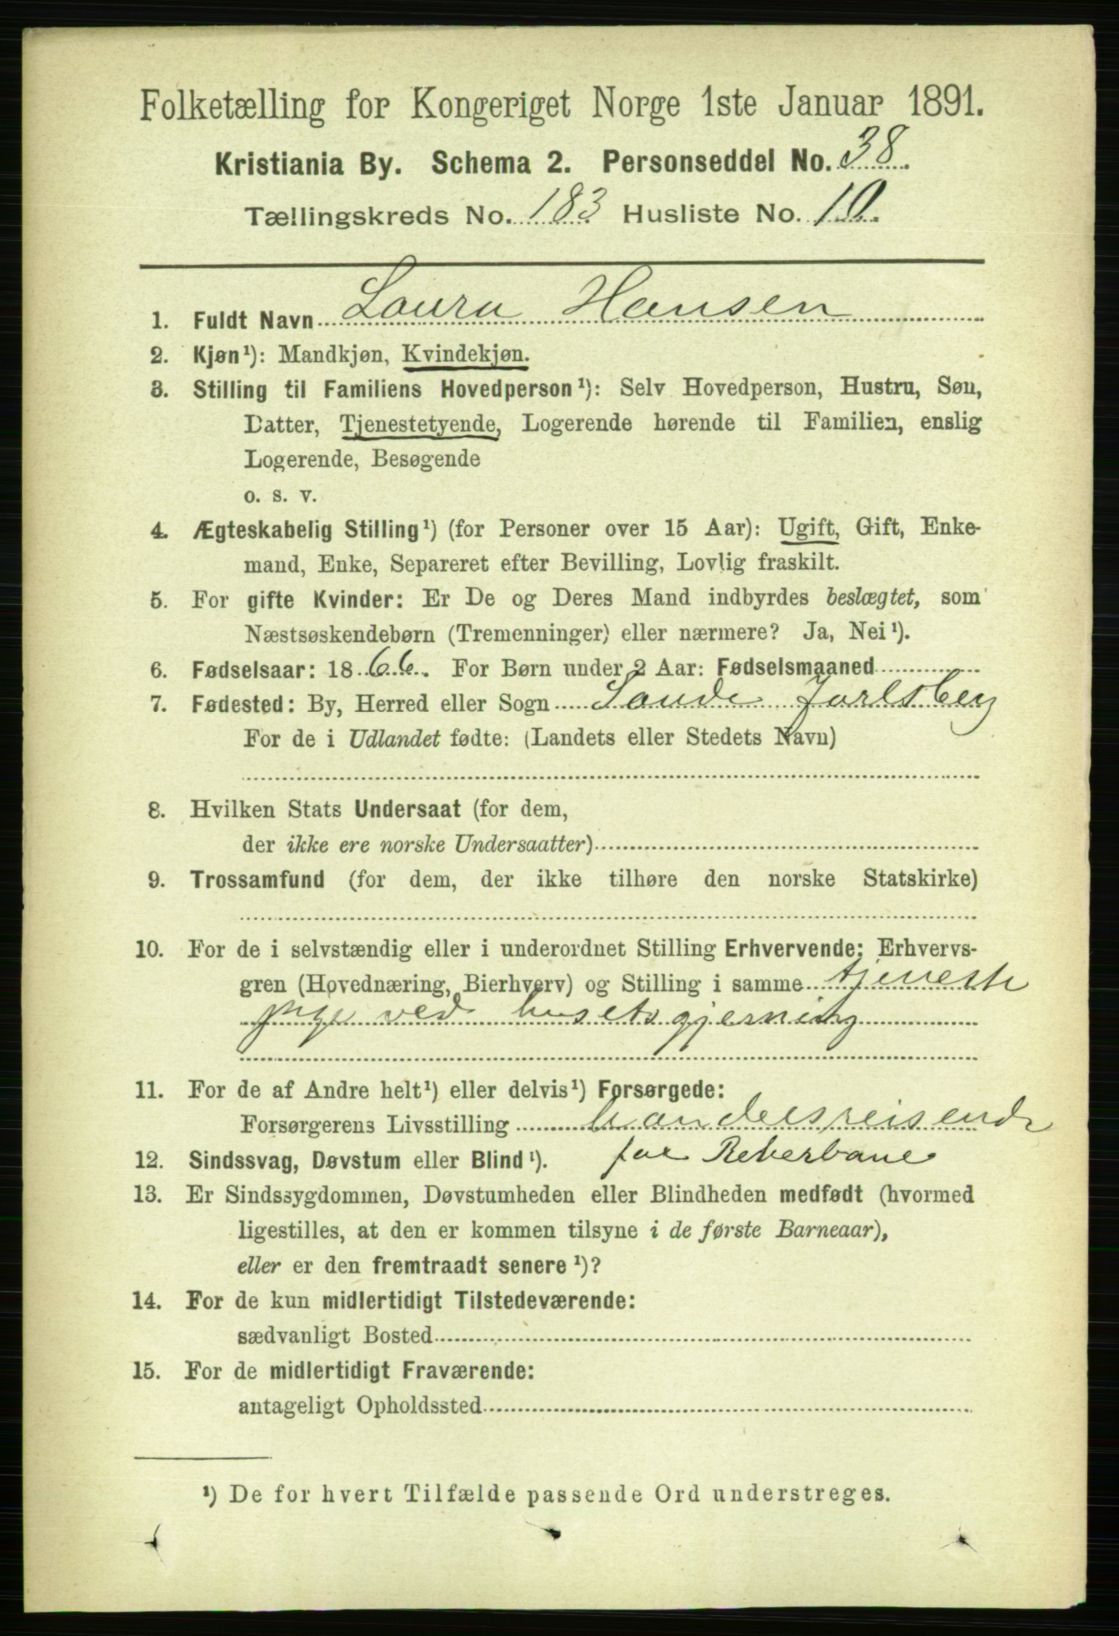 Folketælling for Kongeriget Norge 1ste Januar 1891.
Kristiania By. Schema 2. Personseddel No. 38.
Tællingskreds No. 183 Husliste No. 10.
1. Fuldt Navn Laura Hansen
2. Kjøn¹): Mandkjøn, Kvindekjøn.
3. Stilling til Familiens Hovedperson¹): Selv Hovedperson, Hustru, Søn,
Datter, Tjenestetyende, Logerende hørende til Familien, enslig
Logerende, Besøgende
o. s. v.
4. Ægteskabelig Stilling¹) (for Personer over 15 Aar): Ugift, Gift, Enke-
mand, Enke, Separeret efter Bevilling, Lovlig fraskilt.
5. For gifte Kvinder: Er De og Deres Mand indbyrdes beslægtet, som
Næstsøskendebørn (Tremenninger) eller nærmere? Ja, Nei¹).
6. Fødselsaar: 1866. For Børn under 2 Aar: Fødselsmaaned
7. Fødested: By, Herred eller Sogn Sande Jarlsberg
For de i Udlandet fødte: (Landets eller Stedets Navn)
8. Hvilken Stats Undersaat (for dem,
der ikke ere norske Undersaatter)
9. Trossamfund (for dem, der ikke tilhøre den norske Statskirke)
10. For de i selvstændig eller i underordnet Stilling Erhvervende: Erhvervs-
gren (Hovednæring, Bierhverv) og Stilling i samme tjeneste
pige ved husets gjerning
11. For de af Andre helt¹) eller delvis¹) Forsørgede:
Forsørgerens Livsstilling handelsreisende
12. Sindssvag, Døvstum eller Blind¹). for Reberbane
13. Er Sindssygdommen, Døvstumheden eller Blindheden medfødt (hvormed
ligestilles, at den er kommen tilsyne i de første Barneaar),
eller er den fremtraadt senere¹)?
14. For de kun midlertidigt Tilstedeværende:
sædvanligt Bosted
15. For de midlertidigt Fraværende:
antageligt Opholdssted
¹) De for hvert Tilfælde passende Ord understreges.